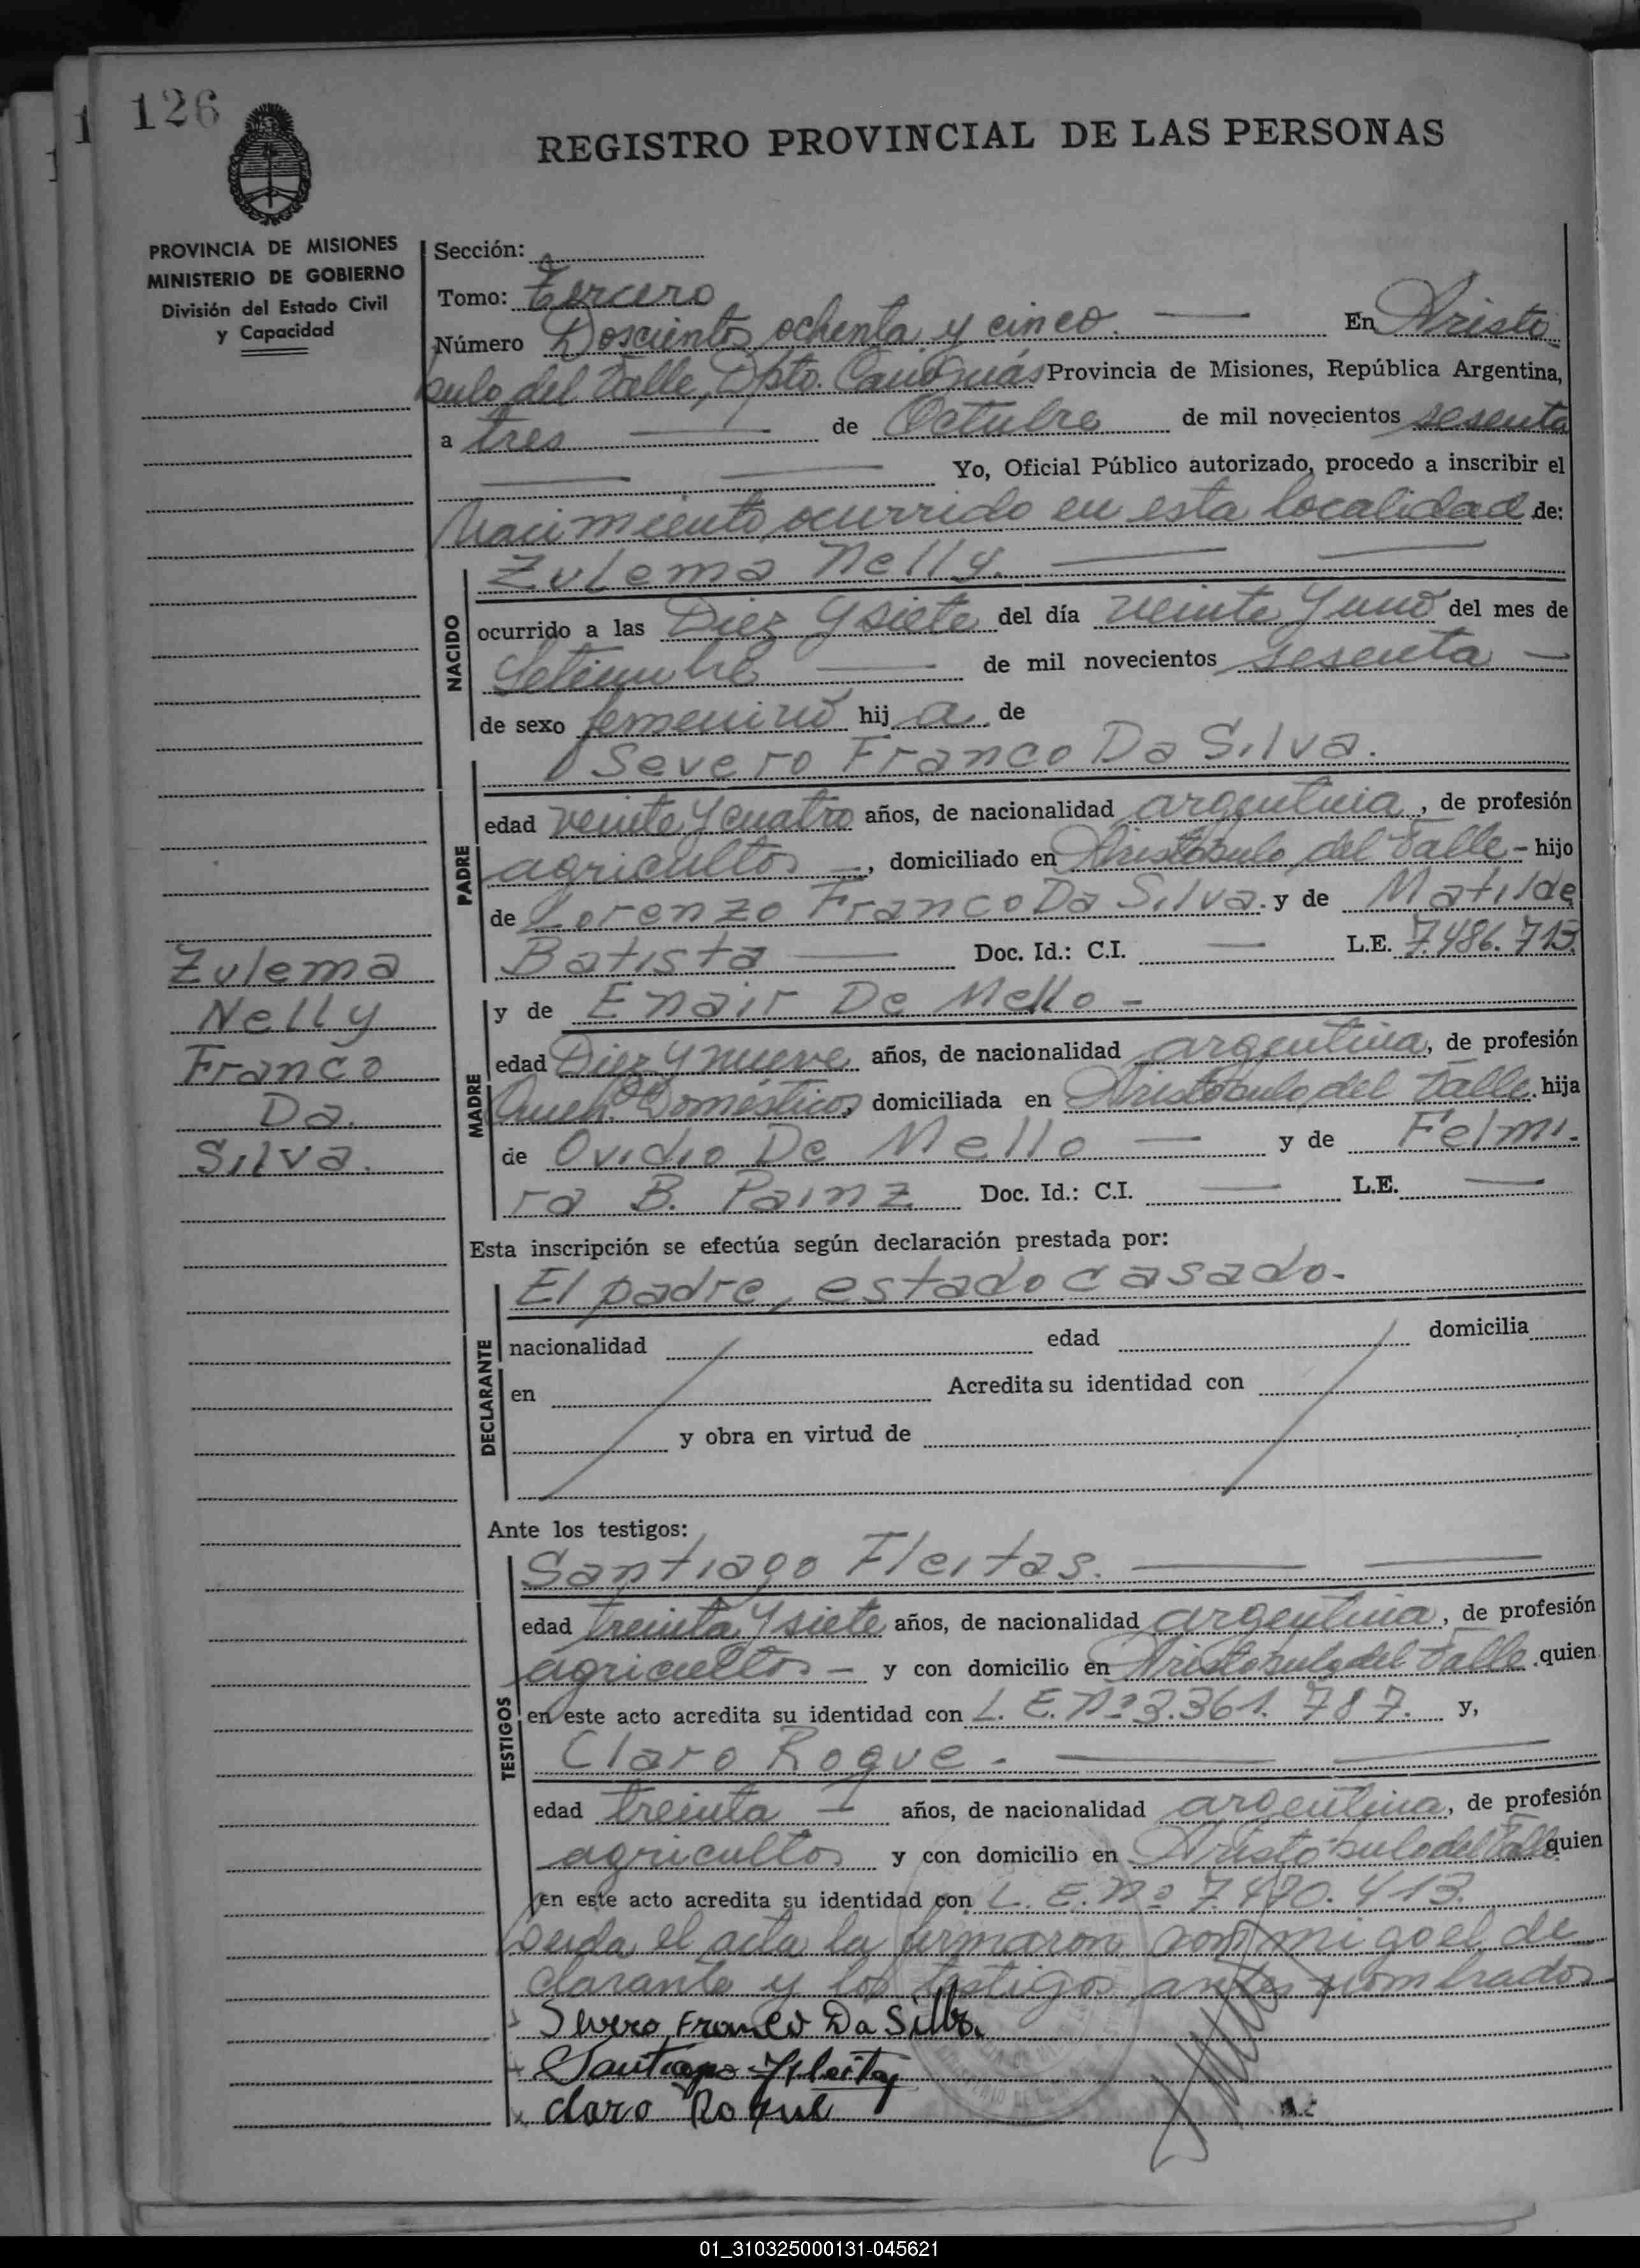 126
REGISTRO PROVINCIAL DE LAS PERSONAS
PROVINCIA DE MISIONES
MINISTERIO DE GOBIERNO
División del Estado Civil
y Capacidad
Sección:
Tomo: Tercero
Número Doscientos ochenta y cinco. En Aristó
bulo del Valle, Dpto. Cainguás Provincia de Misiones, República Argentina,
a tres de Octubre de mil novecientos sesenta
Yo, Oficial Público autorizado, procedo a inscribir el
Nacimiento, ocurrido en esta localidad de:
Zulema Nelly.
NACIDO
ocurrido a las Diez y siete del día veinte y uno del mes de
Setiembre de mil novecientos sesenta
de sexo femenino hij a de
Severo Franco Da Silva.
PADRE
edad veinte y cuatro años, de nacionalidad argentina, de profesión
agricultor, domiciliado en Aristóbulo del Valle - hijo
de Lorenzo Franco Da Silva. y de Matilde
Batista Doc. Id.: C.I. L.E. 7.486.713.
Zulema
Nelly
Franco
Da.
Silva.
y de Enair De Mello -
MADRE
edad Diez y nueve años, de nacionalidad argentina, de profesión
Queh. Domésticos, domiciliada en Aristóbulo del Valle. hija
de Ovidio De Mello y de Felmi-
ra B. Painz Doc. Id.: C.I. L.E.
Esta inscripción se efectúa según declaración prestada por:
El padre, estado casado.
DECLARANTE
nacionalidad edad domicilia
en Acredita su identidad con
y obra en virtud de
Ante los testigos:
Santiago Fleitas.
TESTIGOS
edad treinta y siete años, de nacionalidad argentina, de profesión
agricultor - y con domicilio en Aristóbulo del Valle quien
en este acto acredita su identidad con L. E. Nº 3.361.787. y,
Claro Roque.
edad treinta años, de nacionalidad argentina, de profesión
agricultor y con domicilio en Aristóbulo del Valle quien
en este acto acredita su identidad con L. E. Nº 7.470.413.
Leída el acta la firmaron conmigo el de
clarante y los testigos antes nombrados
Severo Franco Da Silva.
Santiago Fleitas
Claro Roque
01_310325000131-045621